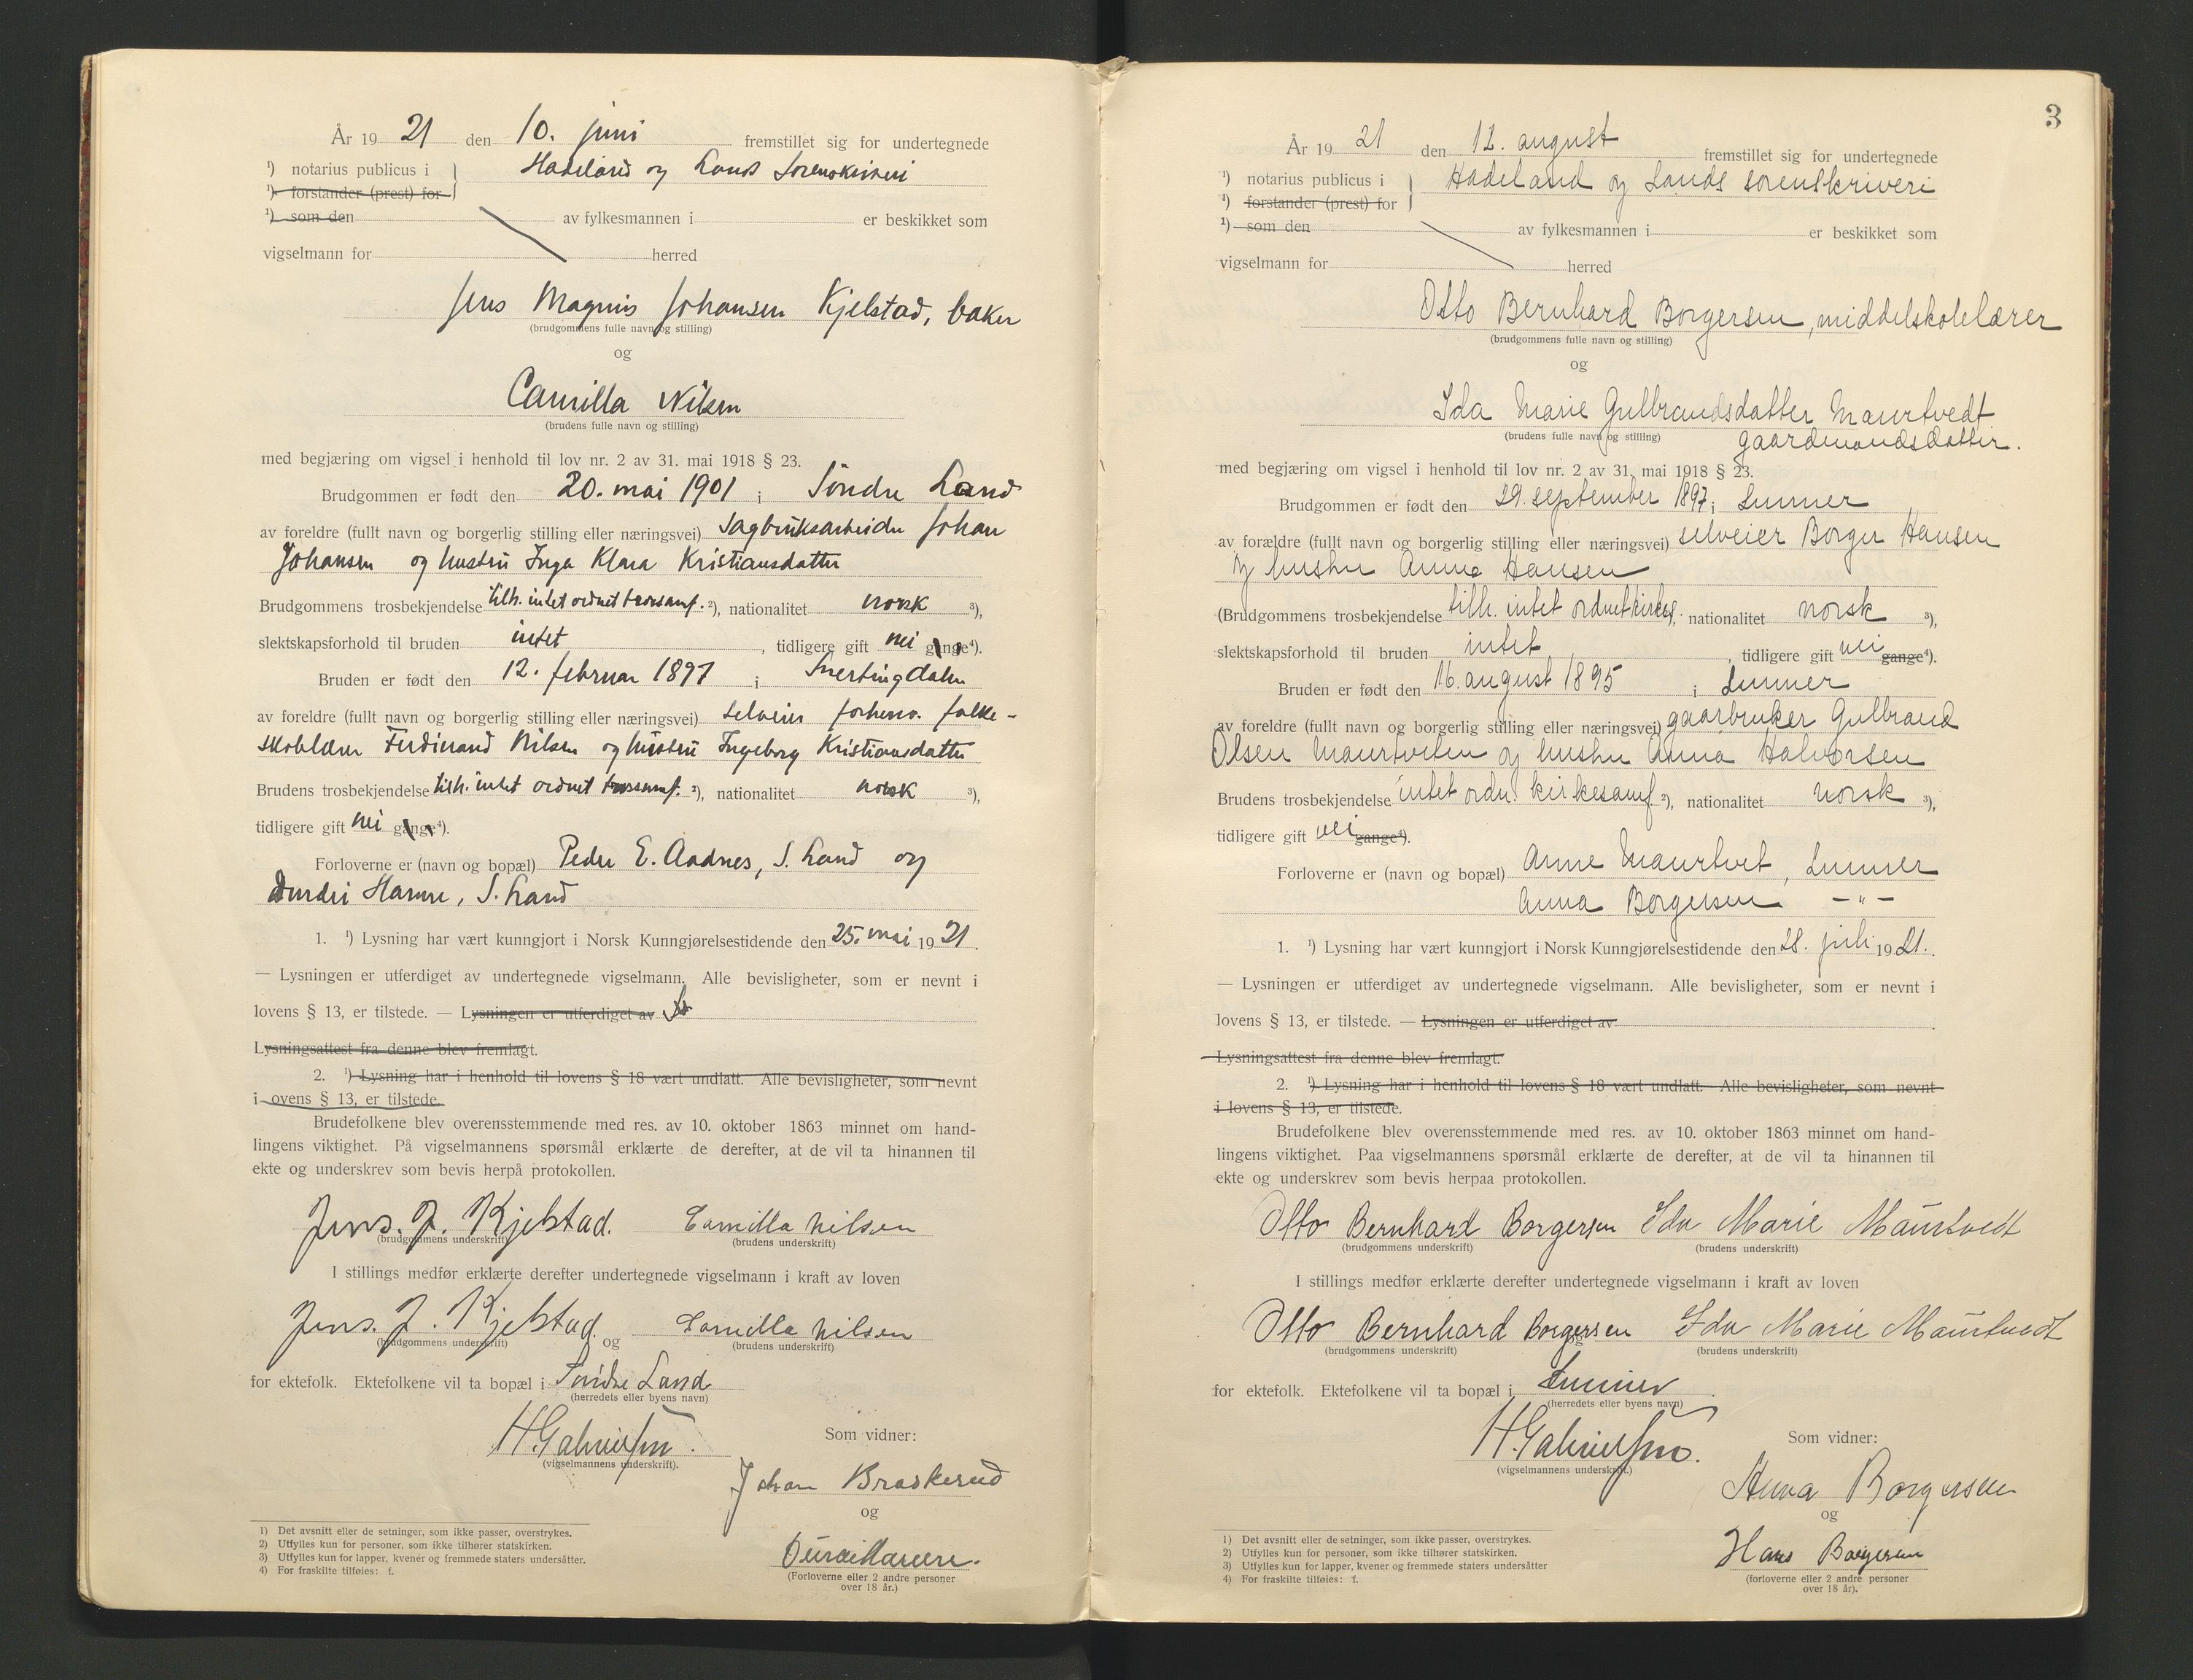 År 19 21 den 10. juni fremstillet sig for undertegnede
¹) notarius publicus i Hadeland og Lands Sorenskriveri
¹) forstander (prest) for
¹) som den av fylkesmannen i er beskikket som
vigselmann for herred
Jens Magnus Johansen Kjelstad, baker
(brudgommens fulle navn og stilling)
og
Camilla Nilsen
(brudens fulle navn og stilling)
med begjæring om vigsel i henhold til lov nr. 2 av 31. mai 1918 § 23.
Brudgommen er født den 20. mai 1901 i Søndre Land
av foreldre (fullt navn og borgerlig stilling eller næringsvei) Sagbruksarbeider Johan
Johansen og hustru Inga Klara Kristiansdatter
Brudgommens trosbekjendelse tilh. intet ordnet trossamf. ²), nationalitet norsk ³),
slektskapsforhold til bruden intet, tidligere gift nei gange⁴).
Bruden er født den 12. februar 1897 i Snertingdalen
av foreldre (fullt navn og borgerlig stilling eller næringsvei) selveier forhenv. folke-
skolelærer Ferdinand Nilsen og hustru Ingeborg Kristiansdatter
Brudens trosbekjendelse tilh. intet ordnet trossamf. ²), nationalitet norsk ³),
tidligere gift nei gange⁴).
Forloverne er (navn og bopæl) Peder E. Aadnes, S. Land og
Harme, S. Land
1. ¹) Lysning har vært kunngjort i Norsk Kunngjørelsestidende den 25. mai 19 21.
— Lysningen er utferdiget av undertegnede vigselmann. Alle bevisligheter, som er nevnt i
lovens § 13, er tilstede. — Lysningen er utferdiget av
Lysningsattest fra denne blev fremlagt.
2. ¹) Lysning har i henhold til lovens § 18 vært undlatt. Alle bevisligheter, som nevnt
i ovens § 13, er tilstede.
Brudefolkene blev overensstemmende med res. av 10. oktober 1863 minnet om hand-
lingens viktighet. På vigselmannens spørsmål erklærte de derefter, at de vil ta hinannen til
ekte og underskrev som bevis herpå protokollen.
Jens. J. Kjelstad. Camilla Nilsen
(brudgommens underskrift) (brudens underskrift)
I stillings medfør erklærte derefter undertegnede vigselmann i kraft av loven
Jens. J. Kjelstad. og Camilla Nilsen
(brudgommens underskrift) (brudens underskrift)
for ektefolk. Ektefolkene vil ta bopæl i Søndre Land
(herredets eller byens navn)
H. Gabrielsen.
(vigselmannens underskrift).
Som vidner:
Johan Braskerud
og
(Forloverne eller 2 andre personer
over 18 år.)
1) Det avsnitt eller de setninger, som ikke passer, overstrykes.
2) Utfylles kun for personer, som ikke tilhører statskirken.
3) Utfylles kun for lapper, kvener og fremmede staters undersåtter.
4) For fraskilte tilføies: f.
3
År 19 21 den 12. august fremstillet sig for undertegnede
¹) notarius publicus i Hadeland og Lands sorenskriveri
¹) forstander (prest) for
¹) som den av fylkesmannen i er beskikket som
vigselmann for herred
Otto Bernhard Borgersen, middelskolelærer
(brudgommens fulle navn og stilling)
og
Ida Marie Gulbrandsdatter Maurtvedt
(brudens fulle navn og stilling) gaardmandsdatter.
med begjæring om vigsel i henhold til lov nr. 2 av 31. mai 1918 § 23.
Brudgommen er født den 29. september 1897 i Lunner
av forældre (fullt navn og borgerlig stilling eller næringsvei) selveier Borger Hansen
og hustru Anne Hansen
(Brudgommens trosbekjendelse tilh. intet ordnet kirkes., nationalitet norsk ³),
slektskapsforhold til bruden intet, tidligere gift nei gange⁴).
Bruden er født den 16. august 1895 i Lunner
av foreldre (fullt navn og borgerlig stilling eller næringsvei) gaarbruker Gulbrand
Olsen Maurtveten og hustru Anna Halvorsen
Brudens trosbekjendelse intet ordn. kirkesamf ²), nationalitet norsk ³),
tidligere gift nei gange⁴).
Forloverne er (navn og bopæl) Anne Maurtvet, Lunner
Anna Borgersen — " —
1. ¹) Lysning har vært kunngjort i Norsk Kunngjørelsestidende den 28. juli 19 21.
— Lysningen er utferdiget av undertegnede vigselmann. Alle bevisligheter, som er nevnt i
lovens § 13, er tilstede. — Lysningen er utferdiget av
Lysningsattest fra denne blev fremlagt.
2. ¹) Lysning har i henhold til lovens § 18 vært undlatt. Alle bevisligheter, som nevnt
i lovens § 13, er tilstede.
Brudefolkene blev overensstemmende med res. av 10. oktober 1863 minnet om hand-
lingens viktighet. Paa vigselmannens spørsmål erklærte de derefter, at de vil ta hinannen til
ekte og underskrev som bevis herpaa protokollen.
Otto Bernhard Borgersen Ida Marie Maurtvedt
(brudgommens underskrift) (brudens underskrift)
I stillings medfør erklærte derefter undertegnede vigselmann i kraft av loven
Otto Bernhard Borgersen og Ida Marie Maurtvedt
(brudgommens underskrift) (brudens underskrift)
for ektefolk. Ektefolkene vil ta bopæl i Lunner.
(herredets eller byens navn)
H. Gabrielsen.
(vigselmannens underskrift.)
Som vidner:
Anna Borgersen
og
Hans Borgersen
(forloverne eller 2 andre personer
over 18 år).
1) Det avsnitt eller de setninger, som ikke passer, overstrykes.
2) Utfylles kun for personer, som ikke tilhører statskirken.
3) Utfylles kun for lapper, kvener og fremmede staters undersåtter
4) For fraskilte tilføies: f.